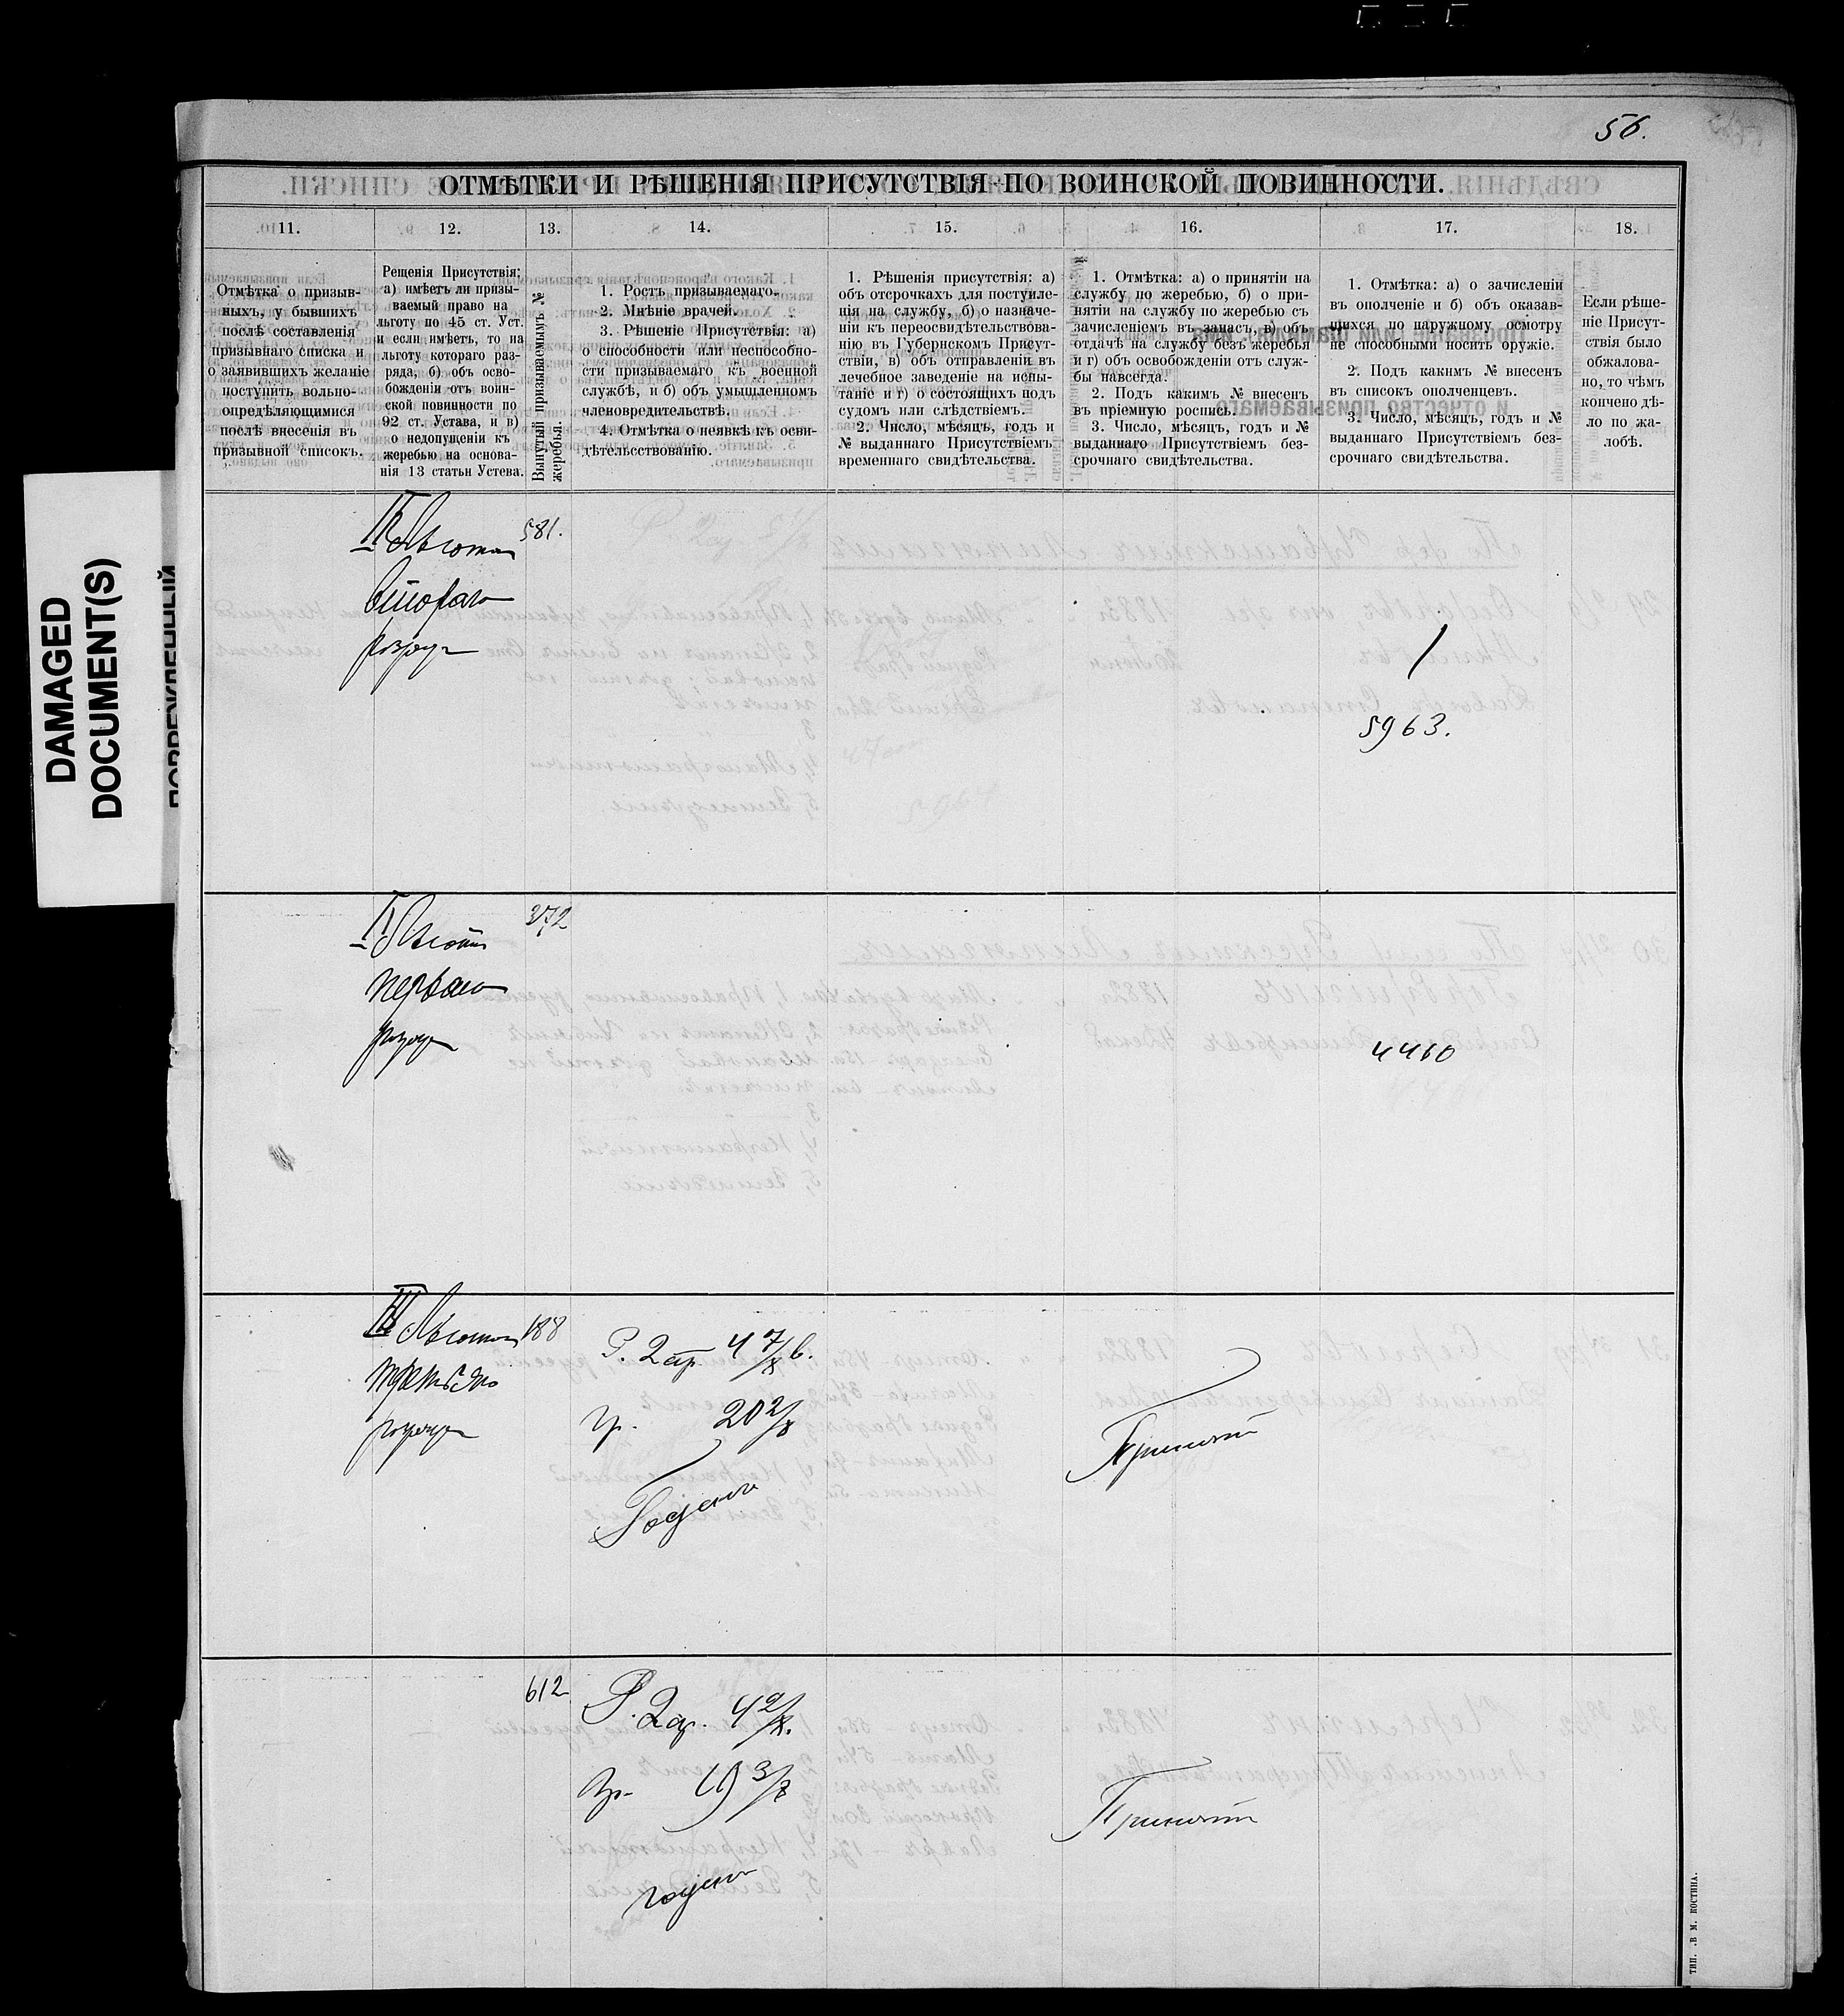 56.
ОТМѢТКИ И РѢШЕНІЯ ПРИСУТСТВІЯ ПО ВОИНСКОЙ ПОВИННОСТИ.
11.
12.
13.
14.
15.
16.
17.
18.
Отмѣтка о призыв-
ныхъ, у бывшихъ
послѣ составленія
призывнаго списка и
о заявившихъ желаніе
поступить вольно-
опредѣляющимися
послѣ внесенія въ
призывной списокъ.
Рещенія Присутствія:
а) имѣетъ ли призы-
ваемый право на
льготу по 45 ст. Уст.
и если имѣетъ, то на
льготу котораго раз-
ряда, б) объ осво-
божденіи отъ воин-
ской повинности по
92 ст. Устава, и в)
о недопущеніи къ
жеребью на основа-
нія 13 статьи Устева.
Вынутый призываемымъ №
жеребья.
1. Ростъ призываемаго.
2. Мнѣніе врачей.
3. Рѣшеніе Присутствія: а)
о способности или неспособно-
сти призываемаго къ военной
службѣ, и б) объ умышленномъ
членовредительствѣ.
4. Отмѣтка о неявкѣ къ осви-
дѣтельсствованію.
1. Рѣшенія присутствія: а)
объ отсрочкахъ для постуиле-
нія на службу, б) о назначе-
ніи къ переосвидѣтельствова-
нію въ Губернскомъ Присут-
ствіи, в) объ отправленіи въ
лечебное заведеніе на испы-
таніе и г) о состоящихъ подъ
судомъ или слѣдствіемъ.
2. Число, мѣсяцъ, годъ и
№ выданнаго Присутствіемъ
временнаго свидѣтельства.
1. Отмѣтка: а) о принятіи на
службу по жеребью, б) о при-
нятіи на службу по жеребью съ
зачисленіемъ въ запасъ, в) объ
отдачѣ на службу безъ жеребья
и г) объ освобожденіи отъ служ-
бы навсегда.
2. Подъ какимъ № внесенъ
въ пріемную роспись.
3. Число, мѣсяцъ, годъ и №
выданнаго Присутствіемъ без-
срочнаго свидѣтельства.
1. Отмѣтка: а) о зачисленіи
въ ополченіе и б) объ оказав-
щихся по наружному осмотру
не способными носять оружіе.
2. Подъ какимъ № внесенъ
въ списокъ ополченцевъ.
3. Число, мѣсяцъ, годъ и №
выданнаго Присутствіемъ без-
срочнаго свидѣтельства.
Если рѣше-
ніе Присут-
ствія было
обжалова-
но, то чѣмъ
кончено дѣ-
ло по жа-
лобѣ.
DAMAGED
DOCUMENT(S)
II Льготы
второго
разряда
581.
5963.
I Льготы
перваго
разряда
372
4460
III Льготы
третьяго
разряда
188
Р. 2 ар. 4 7/8 в.
гр. 20 2/8
Годенъ
Принятъ
612
Р. 2 ар. 4 2/8.
гр. 19 3/8
годенъ
Принятъ
ТИП. В. М. КОСТИНА.